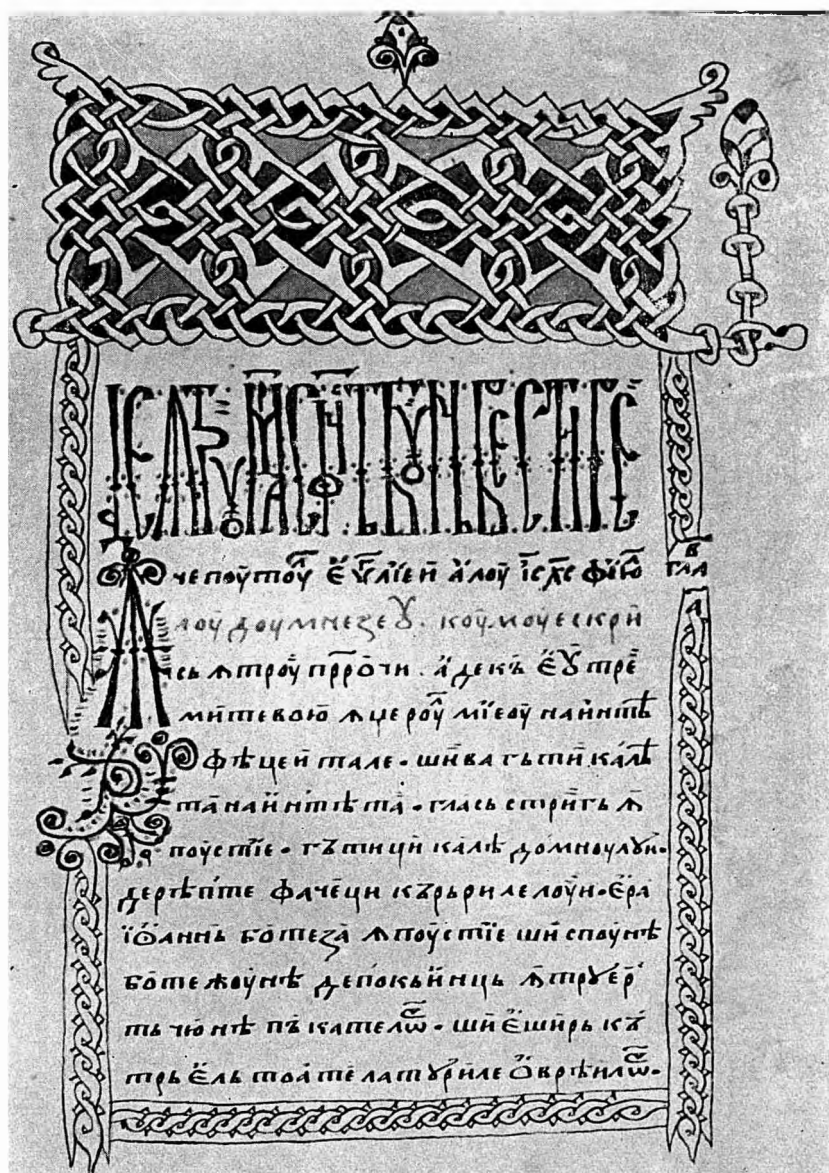 Ꙟчепоутоуⷧ҇ є҆ѵⷢ҇лїей а҆лоу і҆с х҃с фїю
гла в҃
лоу доумнезеꙋ. коумоу є скрїи
а҃
сь ꙟтроу прⷪ҇рочи. а҆декъ є҆ꙋ трⷨ҇е
митевою ꙟцероуⷧ҇ мїеоу наи҆нтѣ
фѣцей тале. ший ва гътѝ калѣ
та наи҆нтѣ та. глась стригъ ꙟ
поустїе. гътици калѣ домноулуй.
дерѣпте фачеци кърьриле лоуи. Єра
Їѡаннь ботеза ꙟ поустїе ши споунѣ
ботежоунѣ депокъинць ꙟтрꙋ єрⷬ҇
тьчюнѣ пъкателѡⷬ҇. ши є҆ширь къ
трь є҆ль тоате латꙋриле ѡ҆врѣилѡⷬ҇.